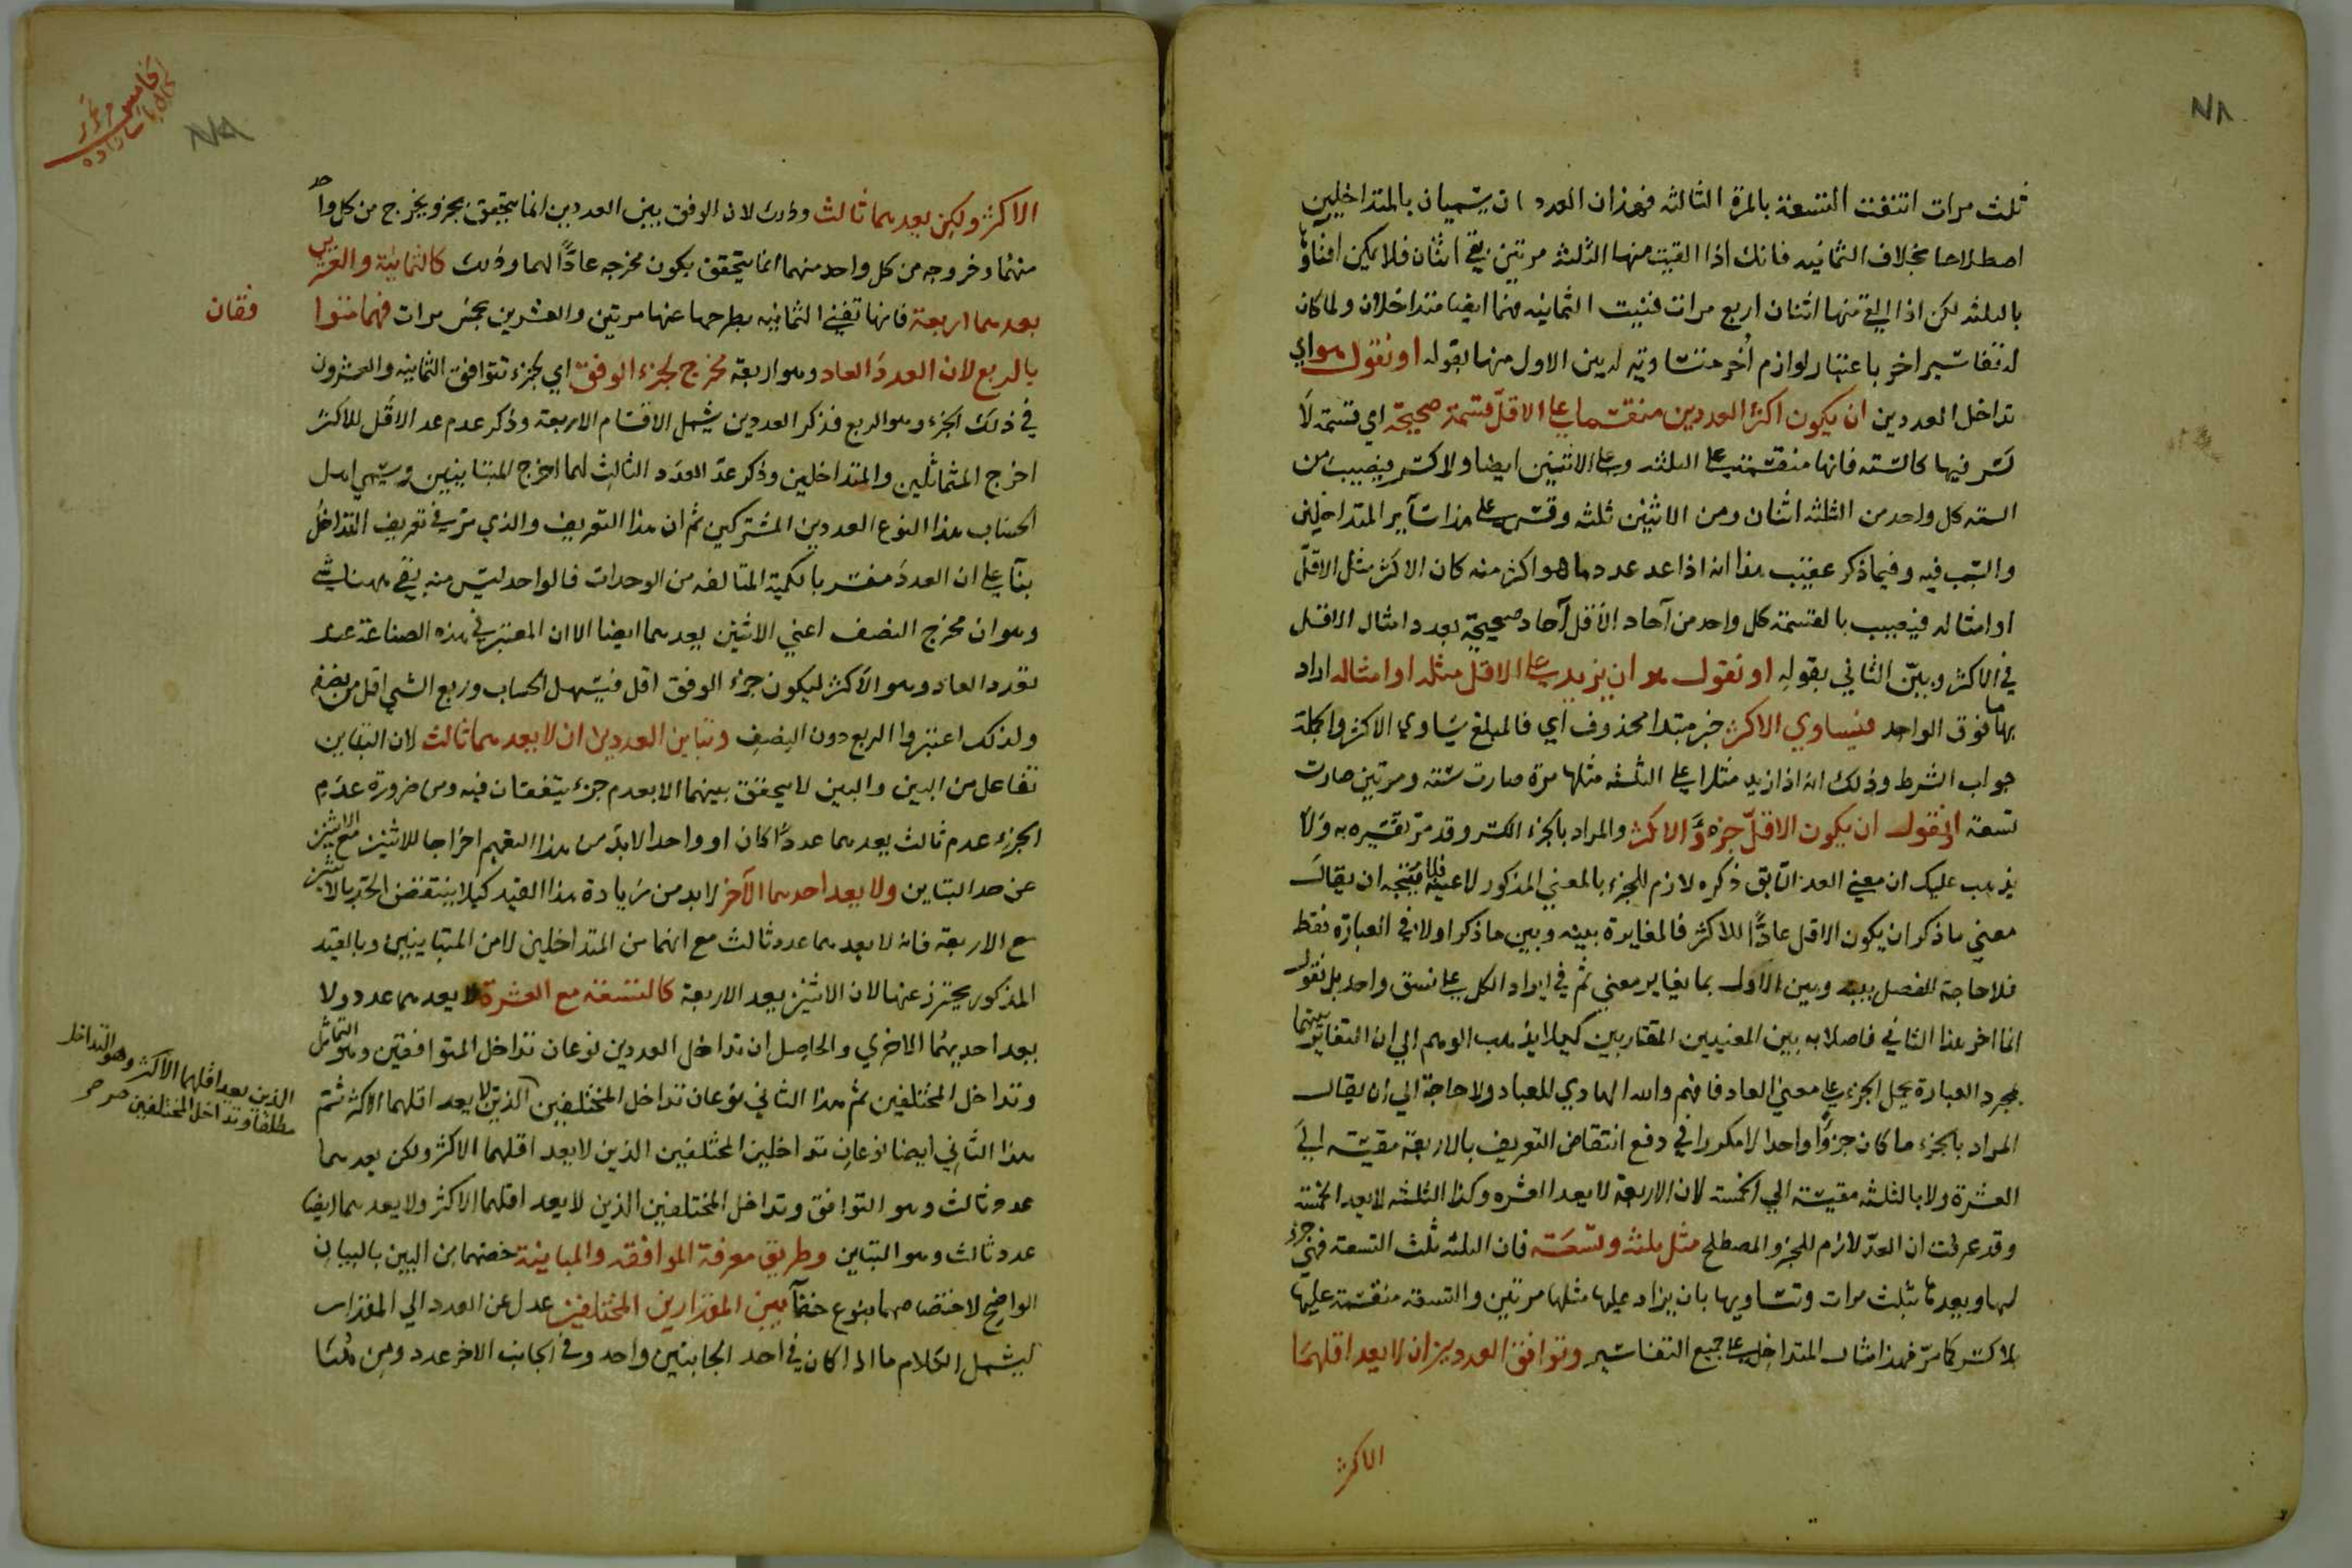 ثلث مرات انتفت التسعة بالمرة الثالثه فهذان العددان يسميان بالمتداخلين
اصطلاحا بخلاف الثمانيه فانك اذا القيت منها الثلثه مرتين بقي اثنان فلا يمكن افناؤها
بالثلثه لكن اذا القي منها اثنان اربع مرات فنيت الثمانيه فهما ايضا متداخلان ولما كان
له تفاسير اخر باعتبار لوازم اُخر متساويه له بين الاول منها بقوله او نقول هو اي
تداخل العددين ان يكون اكثر العددين منقسما على الاقل قسمة صحيحة اي قسمة لا
كسر فيها كالسته فانها منقسمة على الثلثه وعلى الاثنين ايضا ولا كسر فيصيب من
السته كل واحد من الثلثه اثنان ومن الاثنين ثلثه وقس على هذا ساير المتداخلين
والسبب فيه وفيما ذكر عقيب هذا انه اذا عد عدد ما هو اكثر منه كان الاكثر مثل الاقل
او امثاله فيصيب بالقسمة كل واحد من آحاد الاقل آحاد صحيحة بعدد امثال الاقل
في الاكثر وبين الثاني بقوله او نقول هو ان يزيد على الاقل مثله او امثاله اراد
بها ما فوق الواحد فيساوي الاكثر خبر مبتدا محذوف اي فالمبلغ يساوي الاكثر والجملة
جواب الشرط وذلك انه اذا زيد مثلا على الثلثه مثلها مرة صارت ستة ومرتين صارت
تسعة او نقول ان يكون الاقل جزءً الاكثر والمراد بالجزء الكسر وقد مر تفسيره به ولا
يذهب عليك ان معنى العد السابق ذكره لازم للجزء بالمعنى المذكور لا عينه فلا يتجه ان يقال
معنى ما ذكر ان يكون الاقل عادًّا للاكثر فالمغايرة بينه وبين ما ذكر اولا في العبارة فقط
فلا حاجة الفصل بينه وبين الاول بما يغاير معنى ثم في ايراد الكل على نسق واحد بل نقول
انما اخر هذا الثاني فاصلا به بين المعنيين المتقاربين كيلا يذهب الوهم الى ان التغاير بينهما
بمجرد العبارة بحمل الجزء على معنى العاد فافهم والله الهادي للعباد ولا حاجة الى ان يقال
المراد بالجزء ما كان جزءًا واحدا لا مكررا في دفع انتقاض التعريف بالاربعة مقيسة الى
العشرة ولا بالثلثه مقيسة الى الخمسة لان الاربعة لا يعد العشره وكذا الثلثه لا يعد الخمسة
وقد عرفت ان العد لازم للجزء المصطلح مثل ثلثة وتسعة فان الثلثه ثلث التسعة فهي جزء
لها ويعدها بثلث مرات وتساويها بان يزاد عليها مثلها مرتين والتسعة منقسمة عليها
بلا كسر كما مر فهذا مثال المتداخل على جميع التفاسير وتوافق العددين ان لا يعد اقلهما
الاكثر
الاكثر ولكن يعدهما ثالث وذلك لان الوفق بين العددين انما يتحقق بجزء يخرج من كل واحد
منهما وخروجه من كل واحد منهما انما يتحقق بكون مخرجه عادًّا لهما وذلك كالثمانية والعشرين
يعدهما اربعة فانها تفني الثمانيه بطرحها عنها مرتين والعشرين بخمس مرات فهما متوا
فقان
بالربع لان العدد العاد وهو اربعة مخرج لجزء الوفق اي لجزء توافق الثمانيه والعشرون
في ذلك الجزء وهو الربع فذكر العددين يشمل الاقسام الاربعة وذكر عدم عد الاقل للاكثر
اخرج المتماثلين والمتداخلين وذكر عد العدد الثالث لهما اخرج المتباينين ويسمي اهل
الحساب هذا النوع العددين المشتركين ثم ان هذا التعريف والذي مر في تعريف التداخل
بناء على ان العدد مفسر بالكمية المتالفه من الوحدات فالواحد ليس منه بقي ههنا شئ
وهو ان مخرج النصف اعني الاثنين يعدهما ايضا الا ان المعتبر في هذه الصناعة عند
تعدد العاد وهو الاكثر ليكون جزء الوفق اقل فيسهل الحساب وربع الشئ اقل من نصفه
ولذلك اعتبروا الربع دون النصف وتباين العددين ان لا يعدهما ثالث لان التباين
تفاعل من البين والبين لا يتحقق بينهما الا بعدم جزء يتفقان فيه ومن ضرورة عدم
الجزء عدم ثالث يعدهما عددًا كان او واحدا لابد من هذا التعميم اخراجا للاثنين مع الاثنين
عن حد التباين ولا يعد احدهما الآخر لابد من زيادة هذا القيد كيلا ينتقض الحد بالاثنين
مع الاربعة فانه لا يعدهما عدد ثالث مع انهما من المتداخلين لا من المتباينين وبالقيد
المذكور يحترز عنها لان الاثنين يعد الاربعة كالتسعة مع العشرة لا يعدهما عدد ولا
يعد احديهما الاخرى والحاصل ان تداخل العددين نوعان تداخل المتوافقين وهو التماثل
وتداخل المختلفين ثم هذا الثاني نوعان تداخل المختلفين الذين لا يعد اقلهما الاكثر ثم
الذين يعد اقلهما الاكثر وهو التداخل
مطلقا وتداخل المختلفين صح
هذا الثاني ايضا نوعان تداخلين المختلفين الذين لا يعد اقلهما الاكثر ولكن يعدهما
عدد ثالث وهو التوافق وتداخل المختلفين الذين لا يعد اقلهما الاكثر ولا يعدهما ايضا
عدد ثالث وهو التباين وطريق معرفة الموافقة والمباينة خصهما من البين بالبيان
الواضح لاختصاصهما بنوع خفاء بين المقدارين المختلفين عدل عن العدد الى المقدار
ليشمل الكلام ما اذا كان في احد الجانبين واحد وفي الجانب الاخر عدد ومن هنا